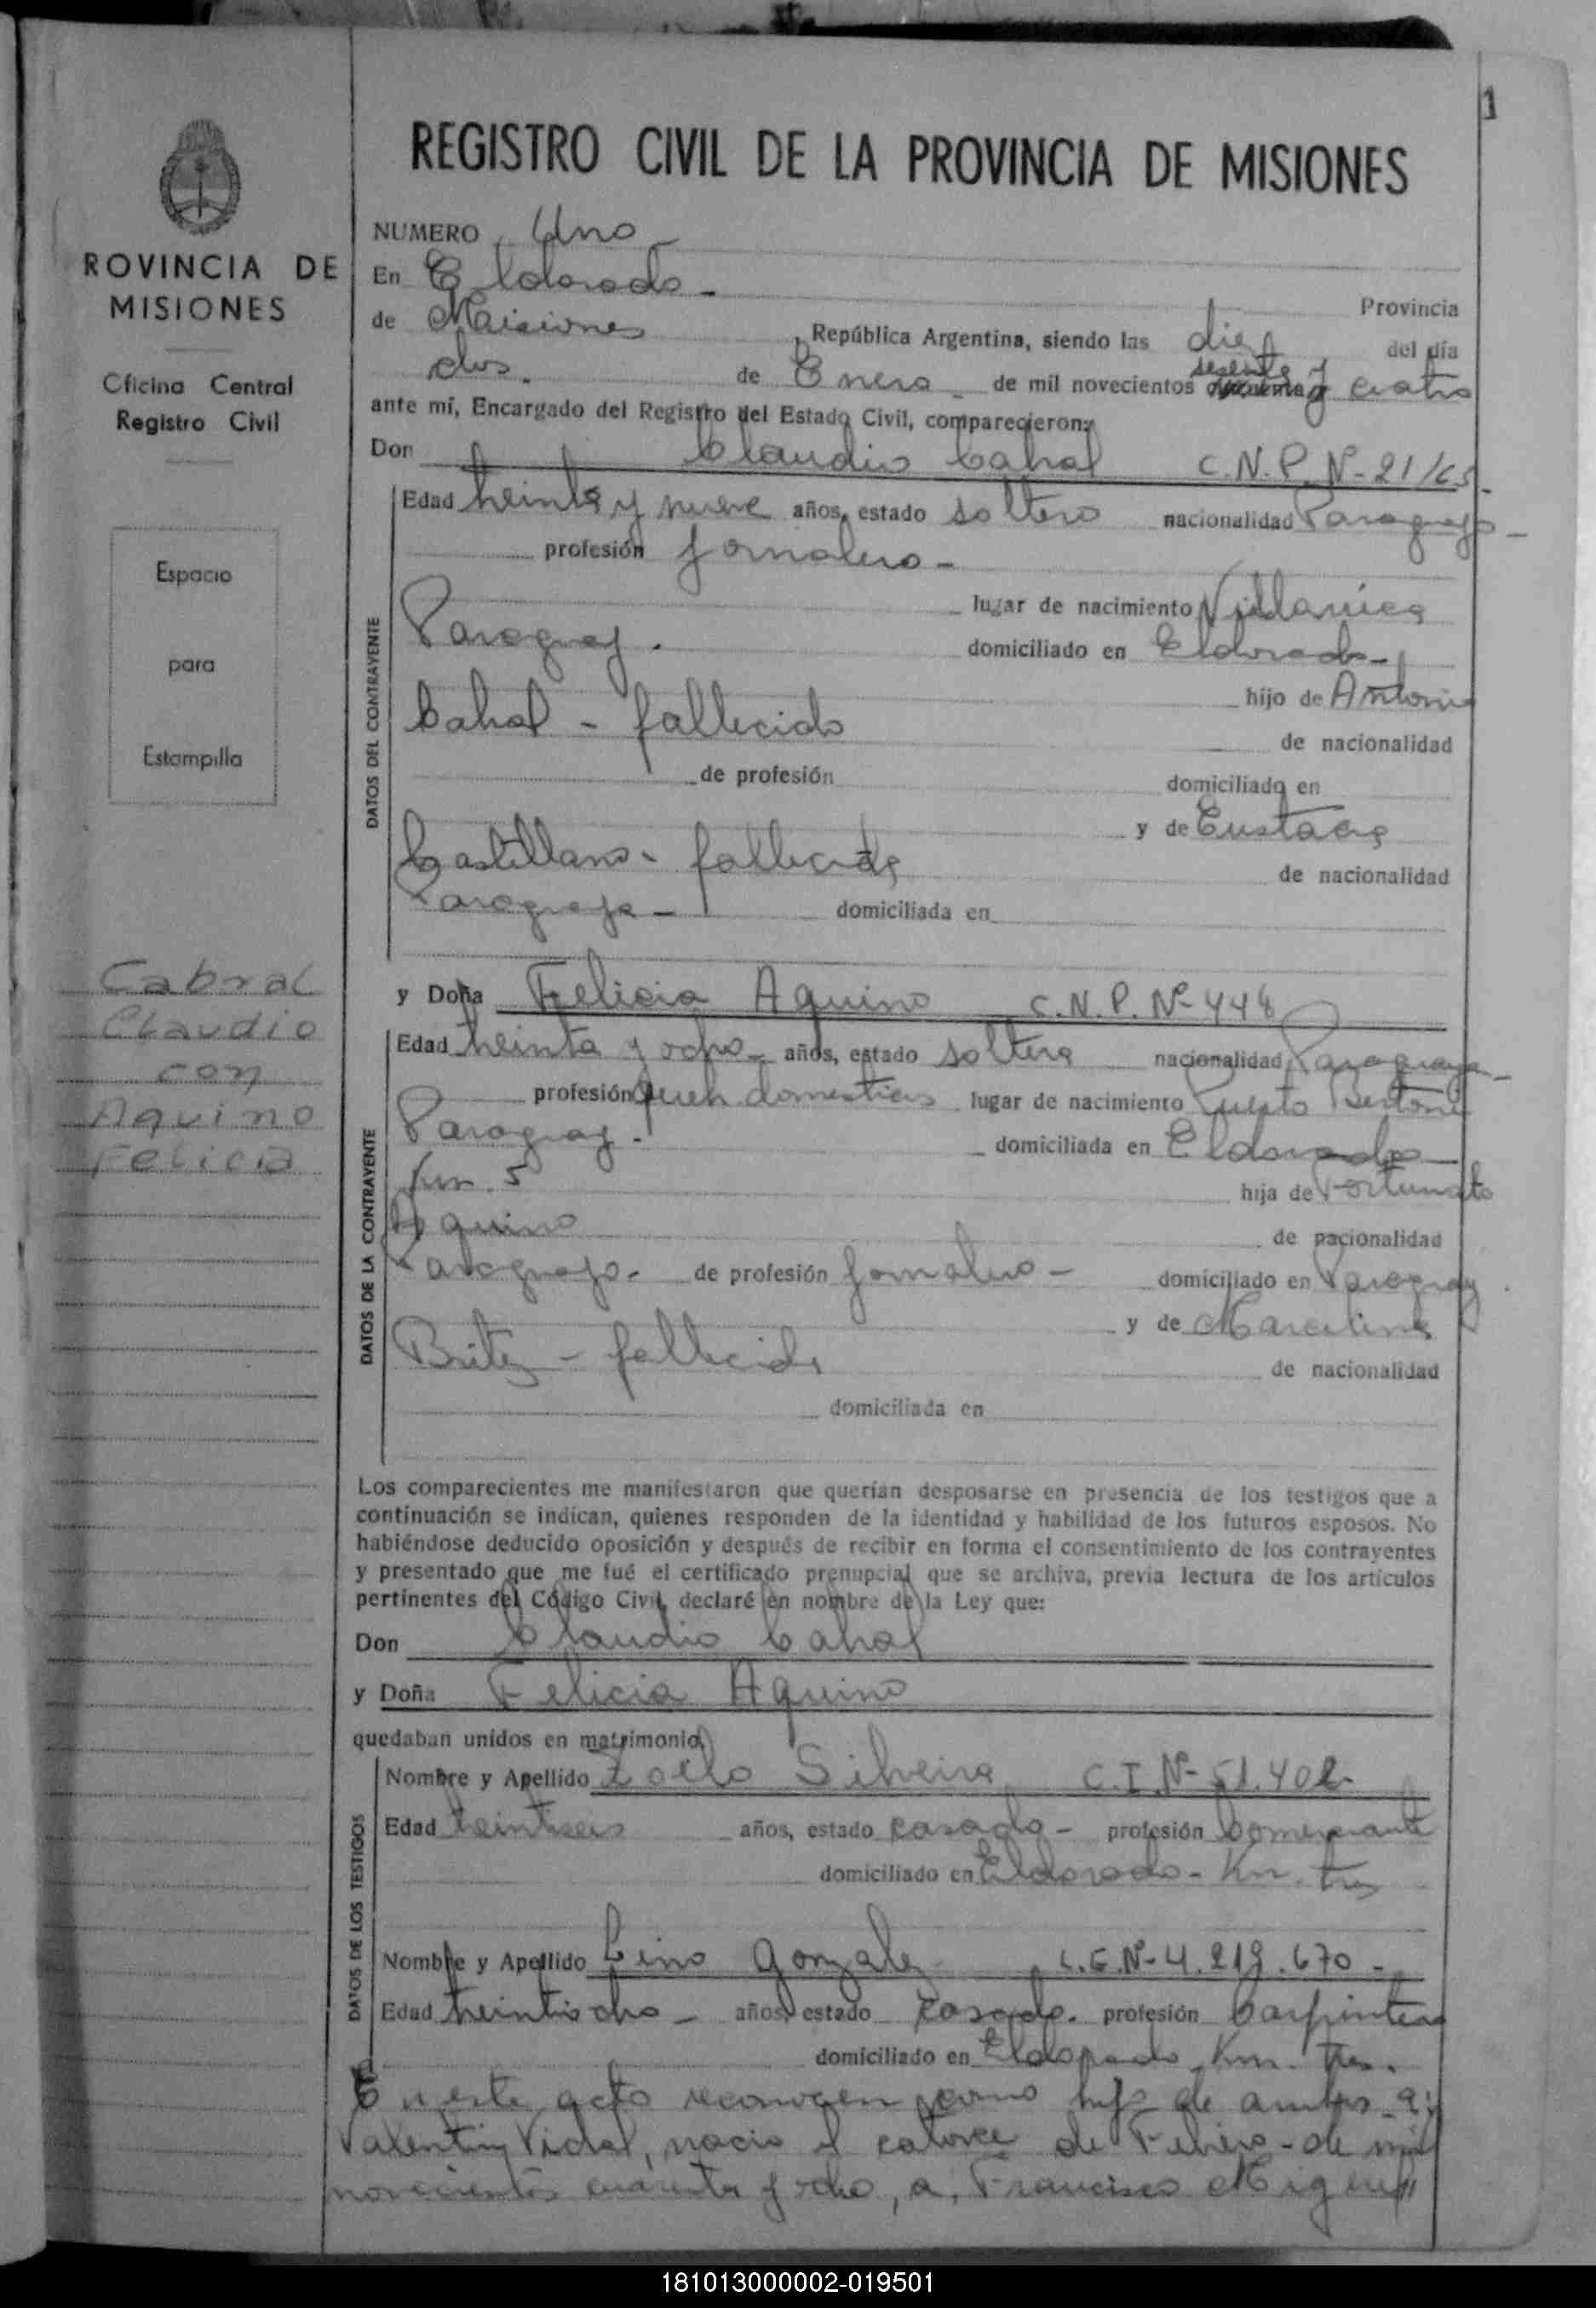 1
REGISTRO CIVIL DE LA PROVINCIA DE MISIONES
ROVINCIA DE
MISIONES
Oficina Central
Registro Civil
Espacio
para
Estampilla
Cabral
Claudio
con
Aquino
Felicia
NUMERO Uno
En Eldorado - Provincia
de Misiones, República Argentina, siendo las diez del día
dos. de Enero de mil novecientos sesenta y cuatro
ante mí, Encargado del Registro del Estado Civil, comparecieron:
Don Claudio Cabral C.N.P. Nº 21/65
DATOS DEL CONTRAYENTE
Edad treinta y nueve años, estado soltero nacionalidad Paraguayo -
profesión jornalero -
lugar de nacimiento Villarrica
Paraguay. domiciliado en Eldorado -
hijo de Antonio
Cabral - fallecido de nacionalidad
de profesión domiciliado en
y de Eustacia
Castellano - fallecida de nacionalidad
Paraguaya - domiciliada en
y Doña Felicia Aquino C.N.P. Nº 448
DATOS DE LA CONTRAYENTE
Edad treinta y ocho - años, estado soltera nacionalidad Paraguaya -
profesión domesticos lugar de nacimiento Puerto Bertoni
Paraguay. domiciliada en Eldorado
km. 5 hija de Fortunato
Aquino de nacionalidad
Paraguayo. de profesión jornalero - domiciliado en Paraguay
y de Marcelina
Britez - fallecida de nacionalidad
domiciliada en
Los comparecientes me manifestaron que querían desposarse en presencia de los testigos que a
continuación se indican, quienes responden de la identidad y habilidad de los futuros esposos. No
habiéndose deducido oposición y después de recibir en forma el consentimiento de los contrayentes
y presentado que me fué el certificado prenupcial que se archiva, previa lectura de los artículos
pertinentes del Código Civil, declaré en nombre de la Ley que:
Don Claudio Cabral
y Doña Felicia Aquino
quedaban unidos en matrimonio.
DATOS DE LOS TESTIGOS
Nombre y Apellido Zoilo Silveira C.I. Nº 51.402
Edad treintiseis años, estado casado - profesión Comerciante
domiciliado en Eldorado - Km. tres
Nombre y Apellido Lino Gonzalez L.E. Nº 4.219.670 -
Edad treintiocho - años, estado casado. profesión Carpintero
domiciliado en Eldorado Km. tres.
En este acto reconocen como hijos de ambos a:
Valentin Vidal, nacio el catorce de Febrero - de mil
novecientos cuarenta y ocho, a, Francisco Miguel
181013000002-019501